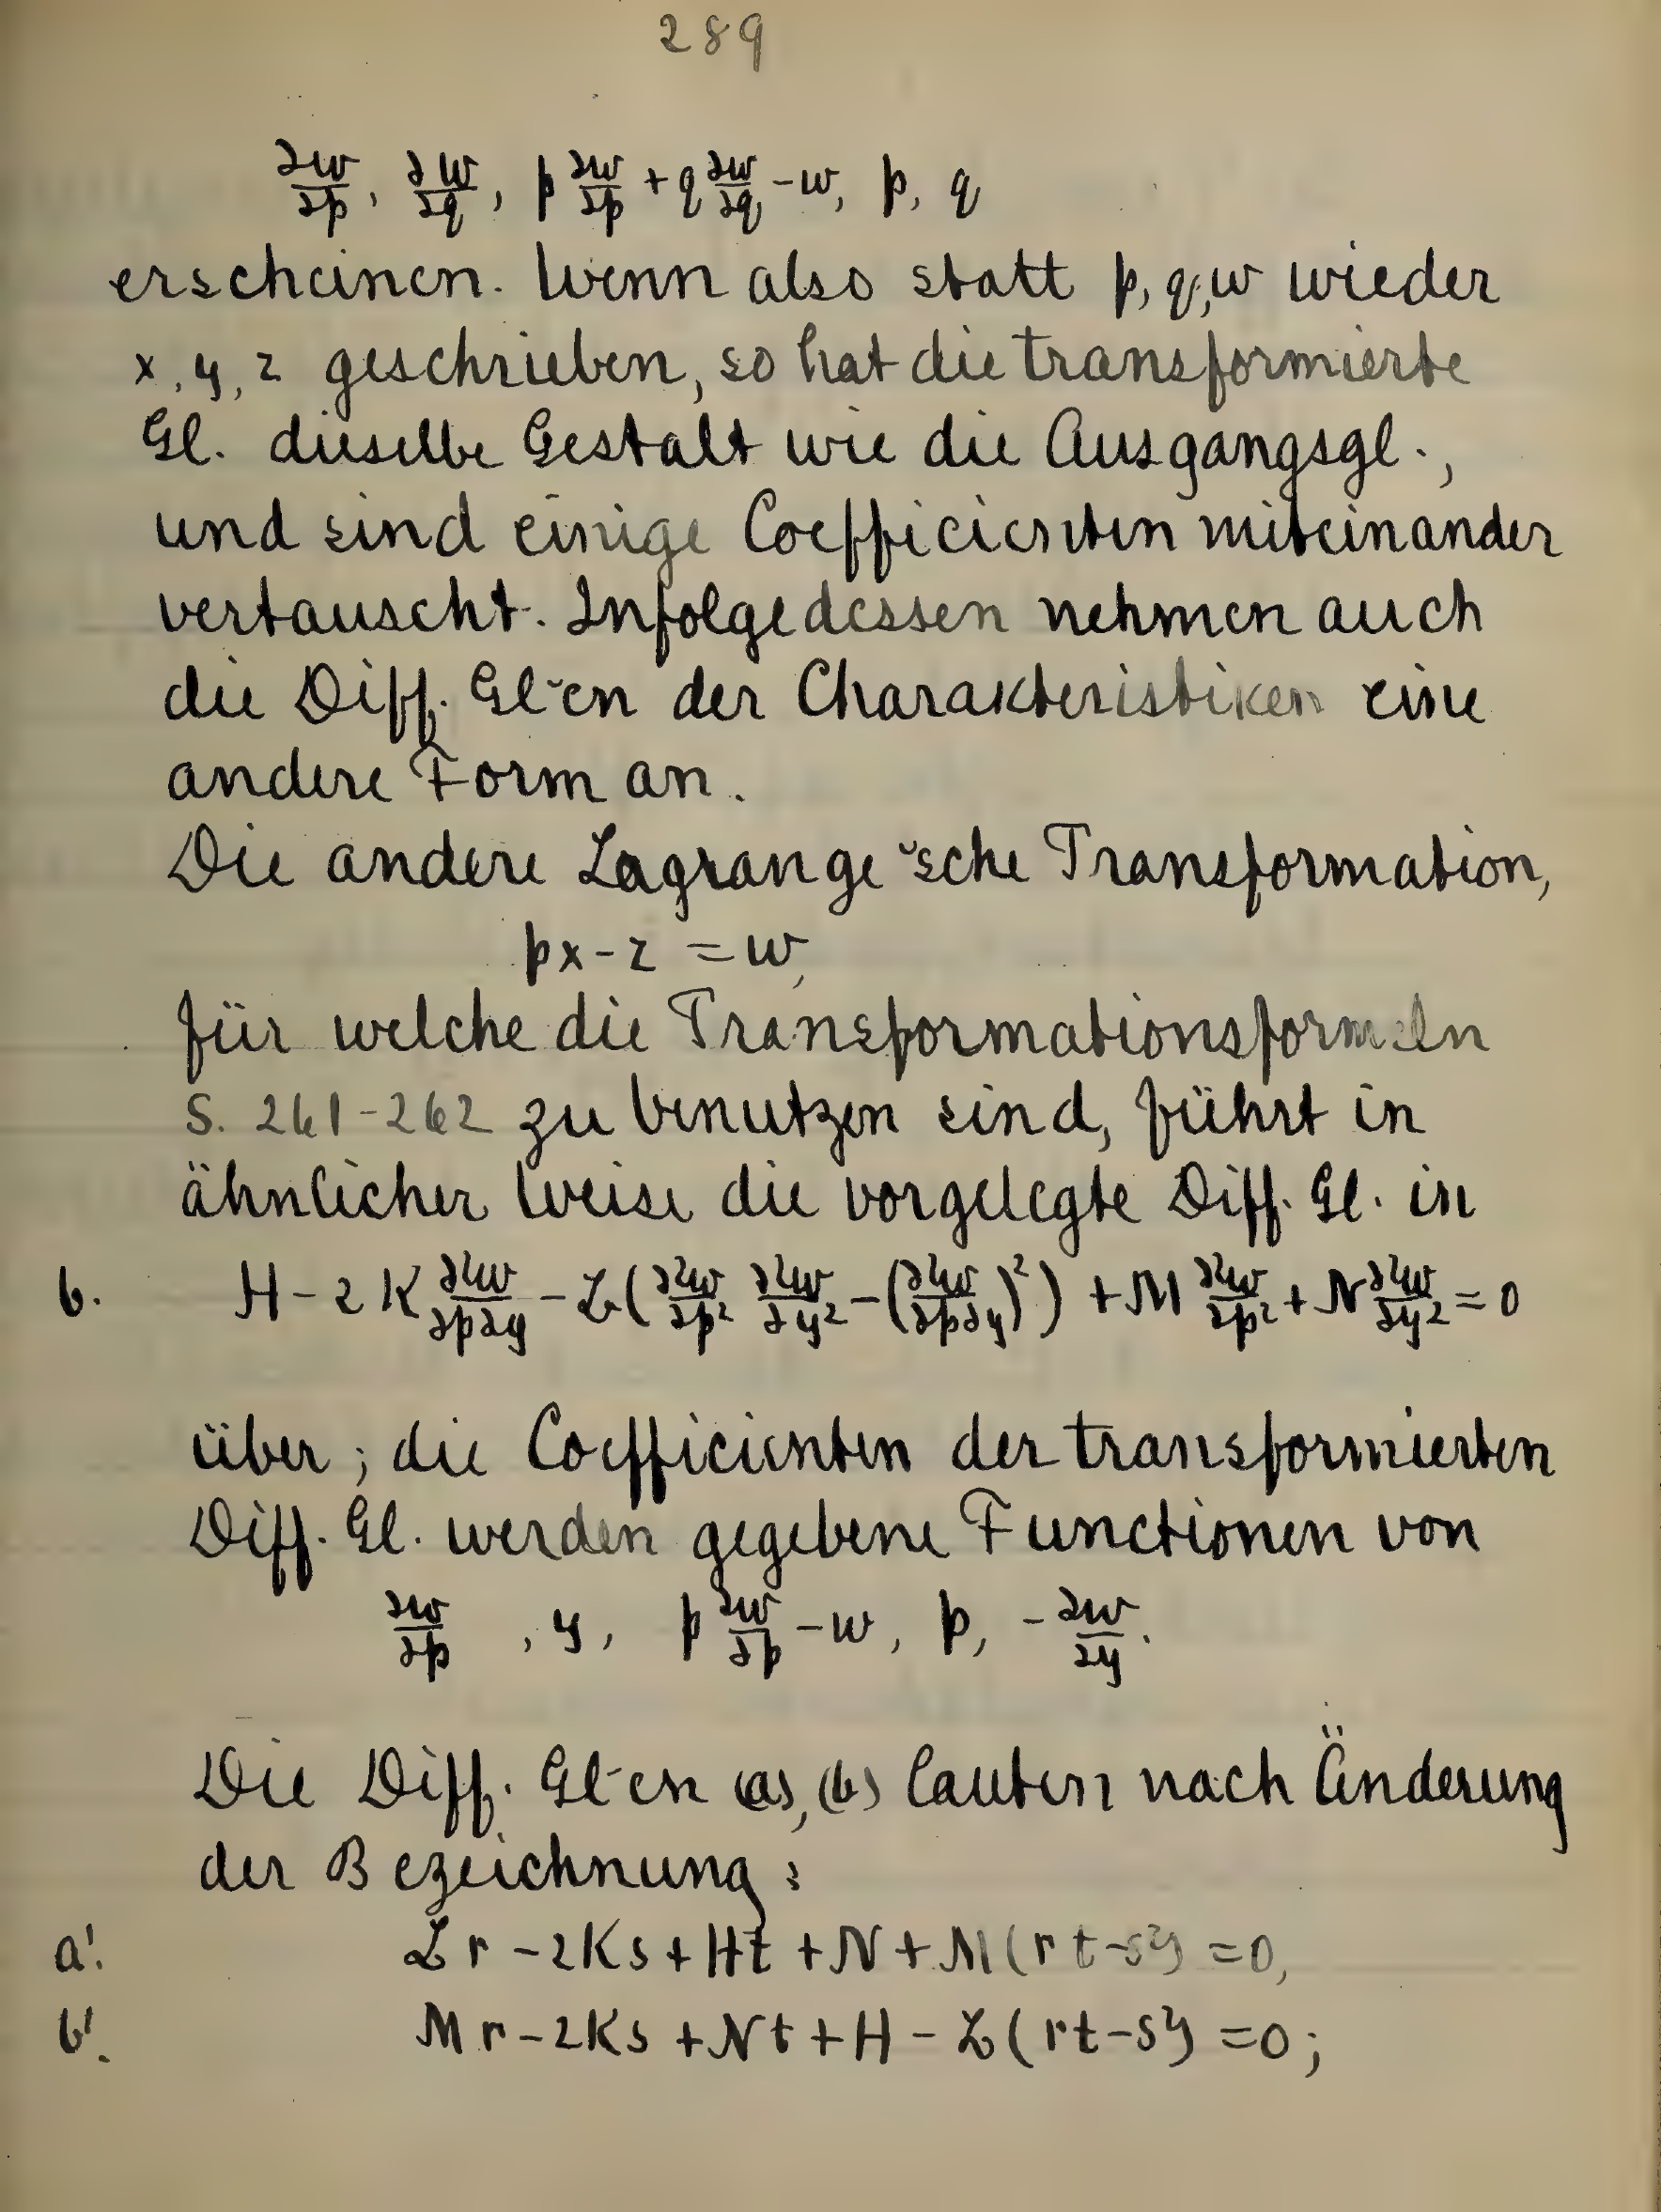 289
∂w/∂p, ∂w/∂q, p ∂w/∂p + q ∂w/∂q - w, p, q
erscheinen. Wenn also statt p, q, w wieder
x, y, z geschrieben, so hat die transformierte
Gl. dieselbe Gestalt wie die Ausgangsgl.,
und sind einige Coefficienten miteinander
vertauscht. Infolgedessen nehmen auch
die Diff. Gl-en der Charakteristiken eine
andere Form an.
Die andere Lagrange'sche Transformation,
px - z = w,
für welche die Transformationsformeln
S. 261-262 zu benutzen sind, führt in
ähnlicher Weise die vorgelegte Diff. Gl. in
b. H - 2K ∂²w/∂p∂y - L(∂²w/∂p² ∂²w/∂y² - (∂²w/∂p∂y)²) + M ∂²w/∂p² + N ∂²w/∂y² = 0
über; die Coefficienten der transformierten
Diff. Gl. werden gegebene Functionen von
∂w/∂p, y, p ∂w/∂p - w, p, - ∂w/∂y.
Die Diff. Gl-en (a), (b) lauten nach Änderung
der Bezeichnung:
a'. Lr - 2Ks + Ht + N + M(rt-s²) = 0,
b'. Mr - 2Ks + Nt + H - L(rt-s²) = 0;